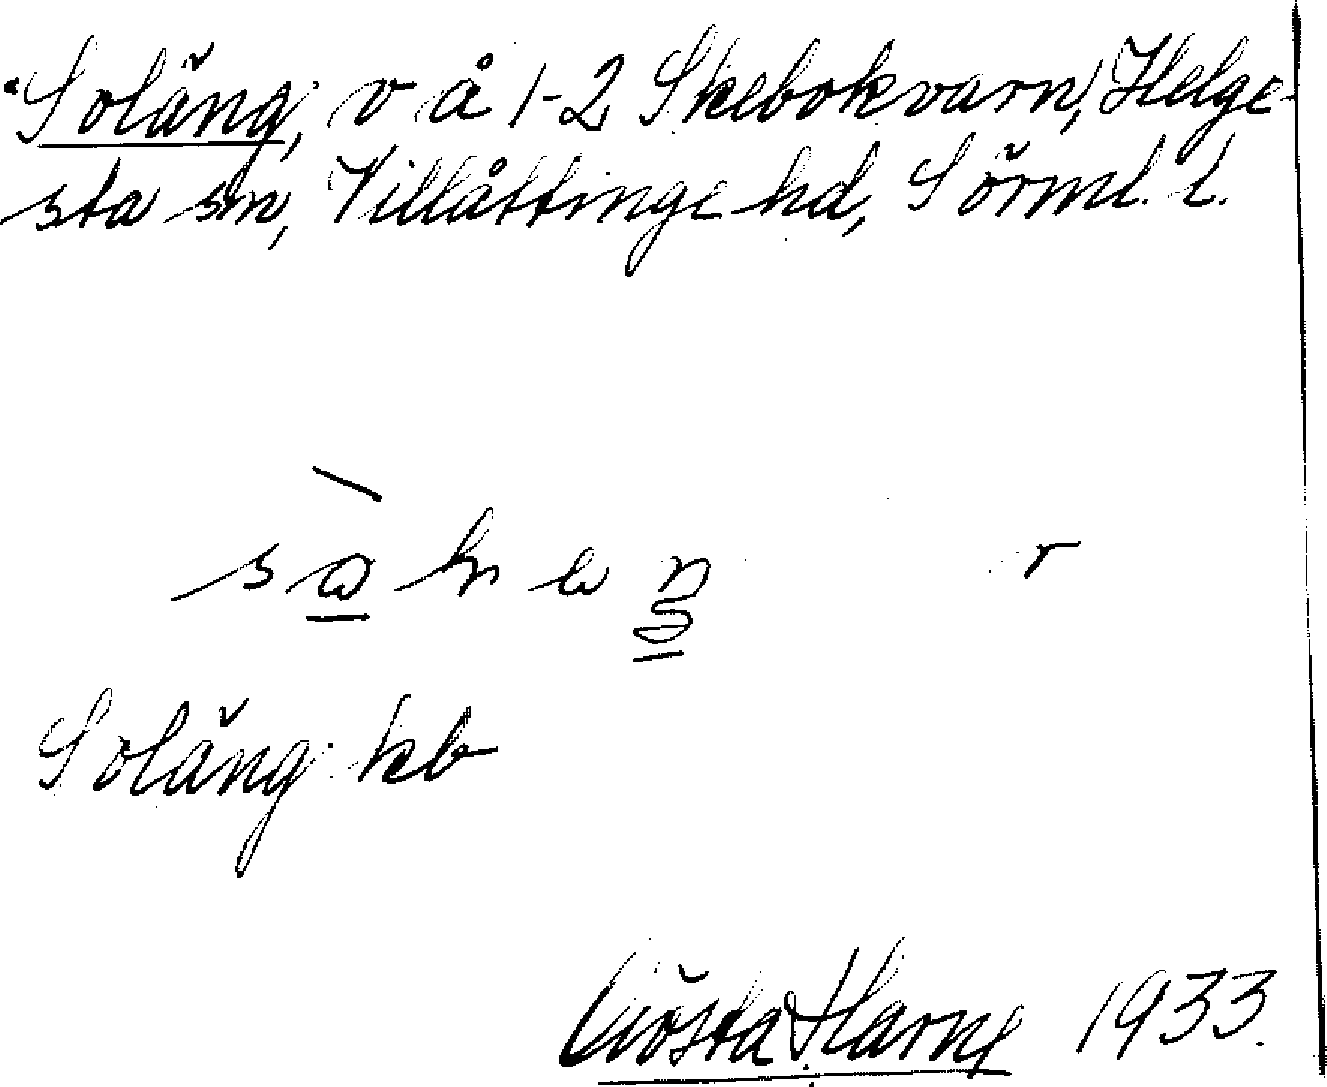 Soläng, v å 1-2 Skebokvarn, Helge-
sta sn, Villåttinge hd, Sörml. l.
r
Soläng kb
Gösta Harne 1933.